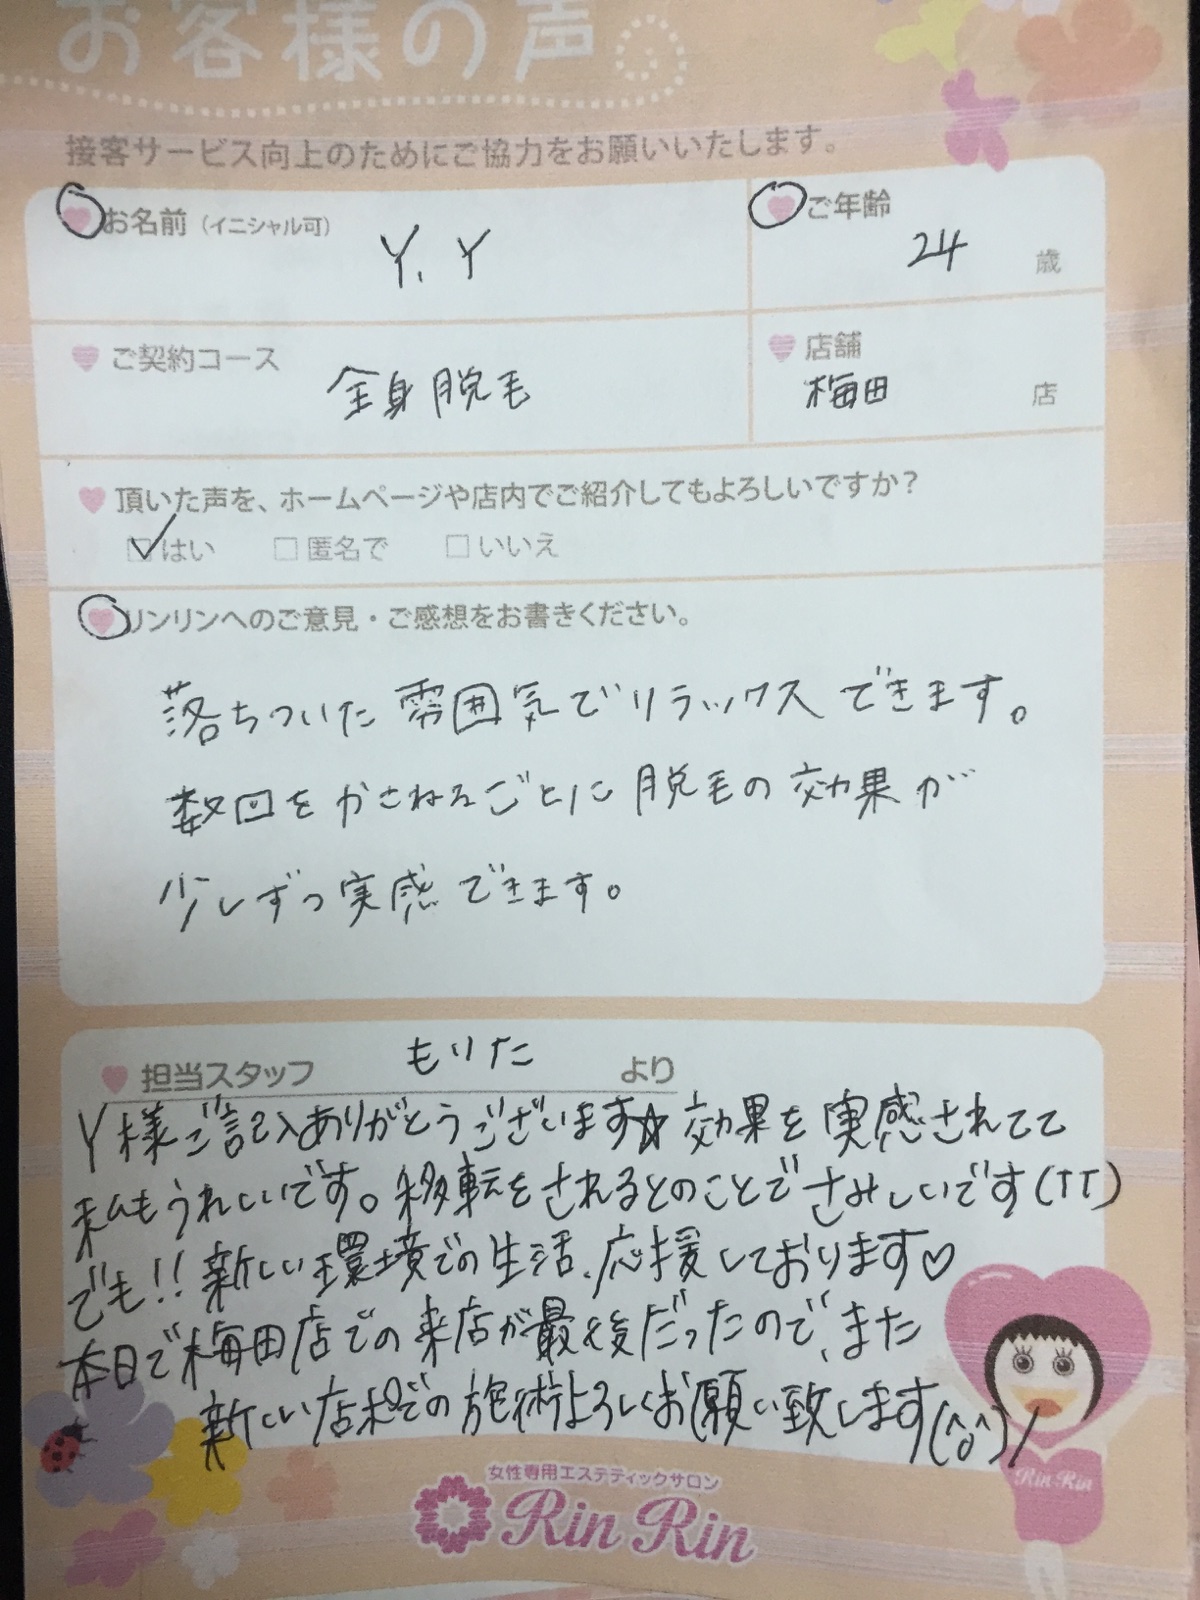 お客様の声
接客サービス向上のためにご協力をお願いいたします。
お名前（イニシャル可） Y.Y
ご年齢 24 歳
ご契約コース 全身脱毛
店舗 梅田 店
頂いた声を、ホームページや店内でご紹介してもよろしいですか？
☑はい □匿名で □いいえ
リンリンへのご意見・ご感想をお書きください。
落ちついた雰囲気でリラックスできます。
数回をかさねるごとに脱毛の効果が
少しずつ実感できます。
担当スタッフ もりた より
Y様ご記入ありがとうございます☆効果を実感されてて
私もうれしいです。移転をされるとのことでさみしいです(TT)
でも!!新しい環境での生活、応援しております♡
本日で梅田店での来店が最後だったので、また
新しい店舗での施術よろしくお願い致します(^o^)/
女性専用エステティックサロン
Rin Rin
Rin Rin